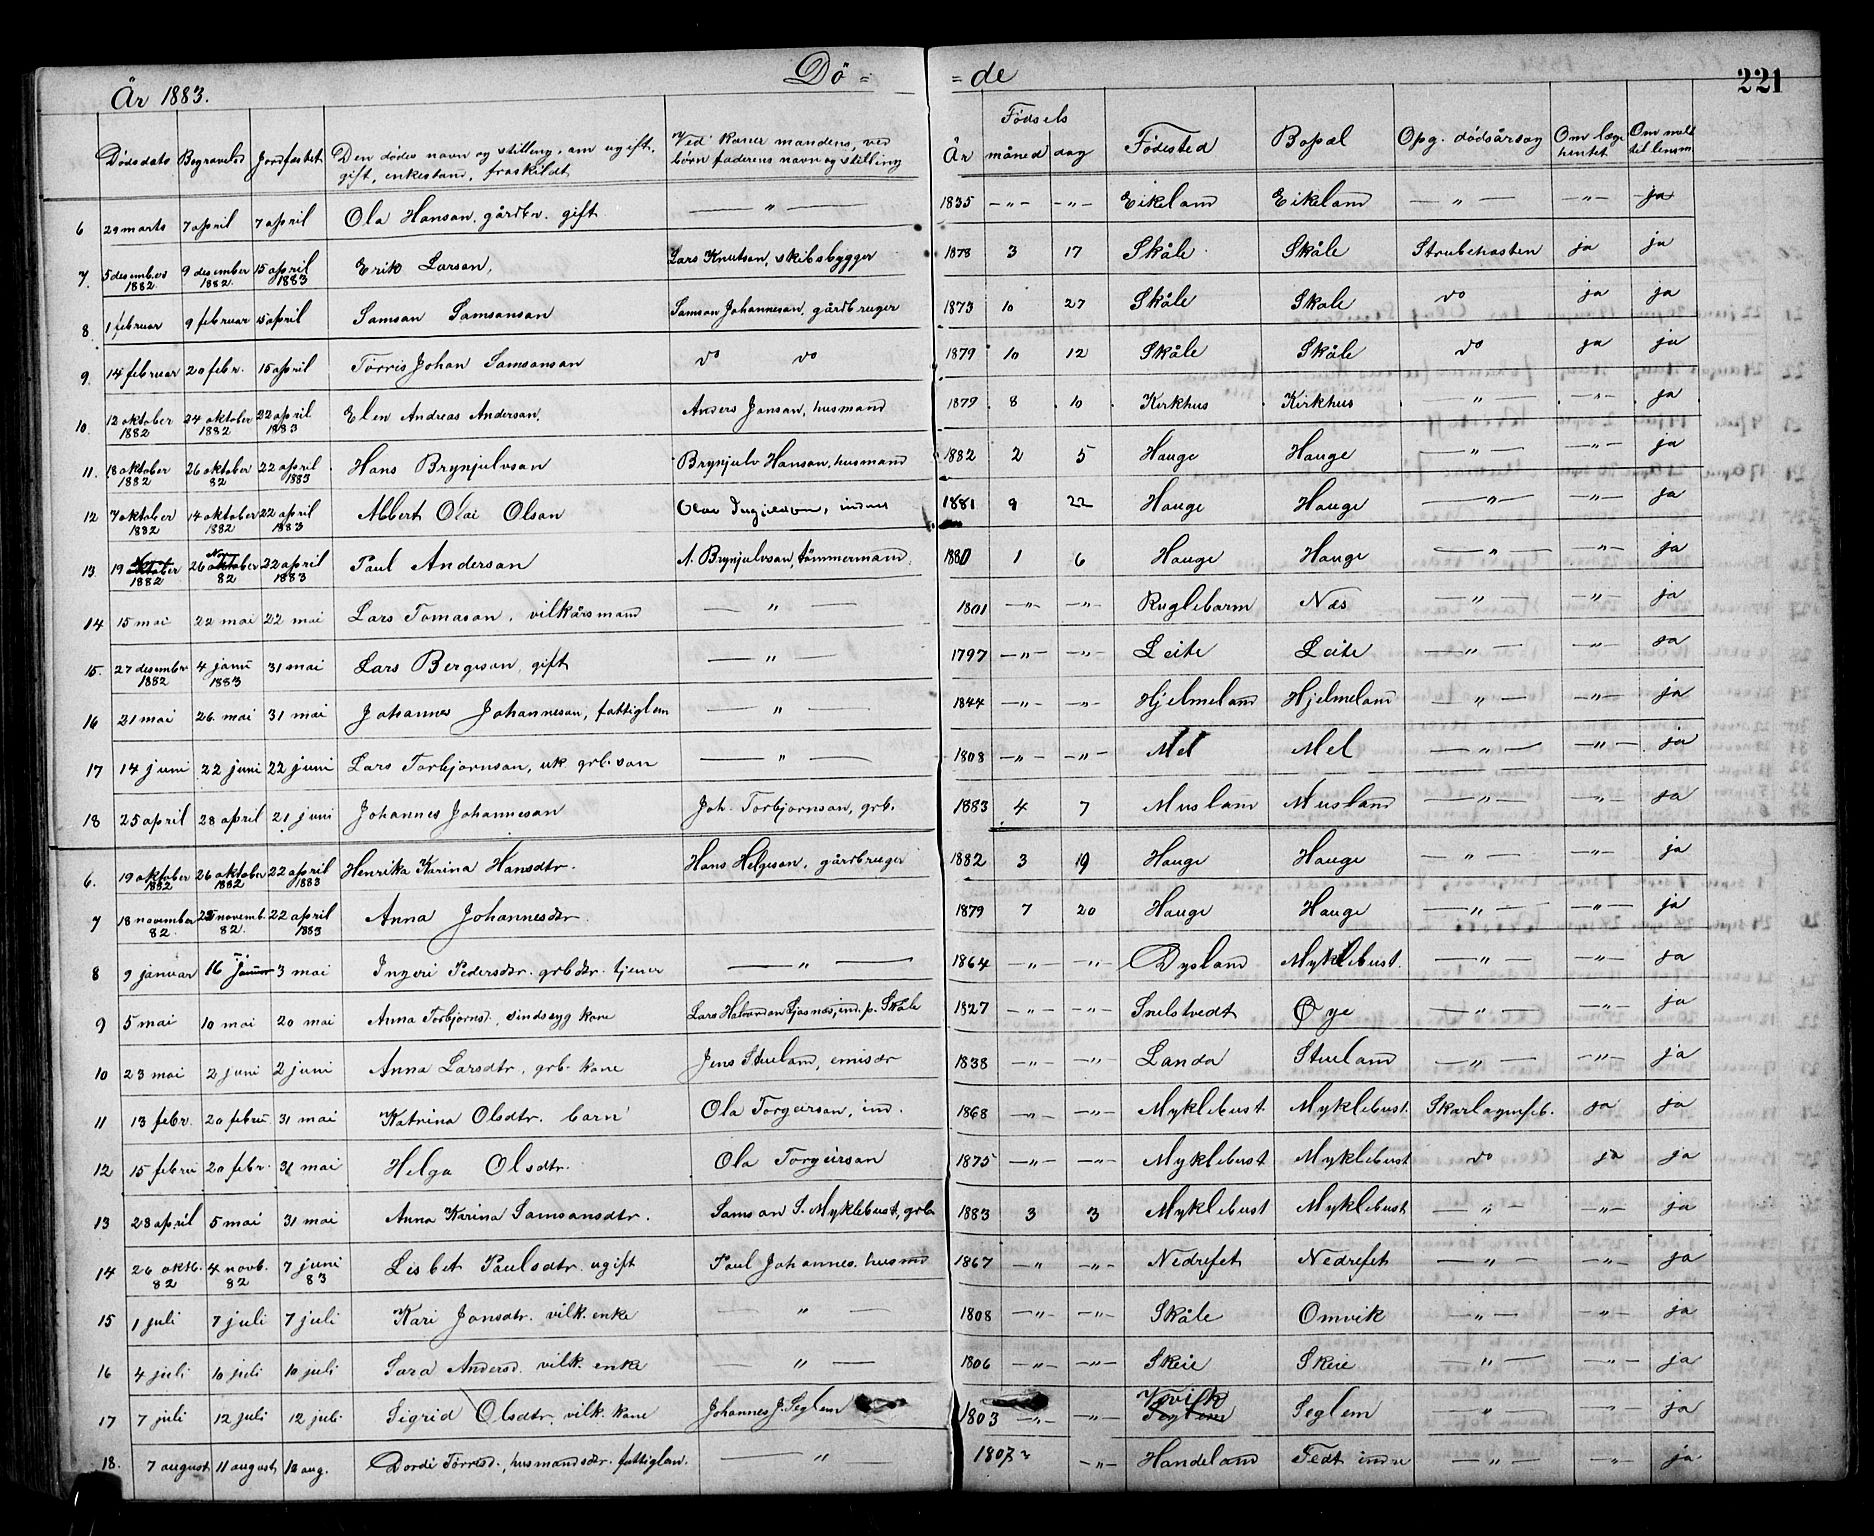 År 1883. Dö= =de 221
Dödsdato Begravelsd Jordfæstet Den dödes navn og stilling, om ugift, gift, enkestand, fraskildt Ved koner mandens, ved börn faderens navn og stilling År Födsels måned dag Födested Bopæl Opg. dödsårsag Om læge hentet Om meldt til lensm
6 29 marts 7 april 7 april Ola Hanson, gårdbr. gift — " — 1835 —"— —"— Eikeland Eikeland — " — —"— ja
7. 5 desembes 1882 9 desember 1882. 15 april 1883 Erik Larson, Lars Knutson, skibsbygger 1878 3 17 Skåle Skåle Strubehosten ja ja
8 1 februar 9 februar 15 april Samson Samsonson Samson Johanneson, gårdbruger 1873 10 27 Skåle Skåle do ja ja
9. 14 februar 20 febr. 15 april Törris Johan Samsonson do do 1879 10 12 Skåle Skåle do ja ja
10. 12 oktober 1882 24 oktober 1882 22 april 1883 Elen Andreas Anderson, Anders Jonson, husmand 1879 8 10 Kirkhus Kirkhus — " — —"— ja
11. 18 oktober 1882 26 oktober 82 22 april 1883 Hans Brynjulvson Brynjulv Hanson, husmand 1882 2 5 Hauge Hauge — " — —"— ja
12 7 oktober 1882 14 oktober 1882 22 april 1883 Albert Olai Olson Olai 1881 9 22 Hauge Hauge — " — —"— ja
13. 19 oktober 1882 26 oktober Nov 82 22 april 1883 Paul Anderson A. Brynjulvson, tömmermand 1880 1 6 Hauge Hauge — " — —"— ja
14 15 mai 22 mai 22 mai Lars Tomason, vilkårsmand — " — 1801 —"— —"— Ruglebarm Næs — " — —"— ja
15. 27 desembr 1882 4 janu 1883 31 mai Lars Bergeson, gift — " — 1797 —"— —"— Leite Leite — " — —"— ja
16 21 mai 26 mai 31 mai Johannes Johanneson, fattiglem — " — 1844 —"— —"— Hjelmeland Hjelmeland — " — —"— ja
17 14 juni 22 juni 22 juni Lars Torbjornson, uk grb. son — " — 1808 —"— —"— Mel Mel — " — —"— ja
18 25 april 28 april 21 juni Johannes Johanneson Joh. Torbjornson, grb. 1883 4 7 Musland Musland — " — —"— ja
6. 19 oktober 1882 26 oktober 1882 22 april 1883 Henrika Karina Hansdtr. Hans Helgeson, gårdbruger 1882 3 19 Hauge Hauge — " — —"— ja
7 18 november 82. novemb. 82. 22 april 1883 Anna Johannesdtr. 1879 7 20 Hauge Hauge — " — —"— ja
8 9 januar 16 januar 3 mai Ingeri Pedersdtr. grb dtr. tjener — " — 1864 —"— —"— Dysland Myklebust. — " — —"— ja
9 5 mai 10 mai 20 mai Anna Torbjornsd., sindssyg kone Lars Halvordson ind. p. Skåle 1827 —"— —"— Snelstvedt Öye — " — —"— ja
10 23 mai 2 juni 2 juni Anna Larsdtr, grb. kone Jens Stueland, emisær 1838 —"— —"— Landa Stueland — " — —"— ja
11 13 febr. 20 febru 31 mai Katrina Olsdtr. barn Ola Torgeirson, ind. 1868 —"— —"— Myklebust Myklebust. Skarlagensfeb. ja ja
12 15 febru 20 febr. 31 mai Helga Olsdtr. Ola Torgeirson 1875 —"— —"— Myklebust Myklebust do ja ja
13 28 april 5 mai 31 mai Anna Karina Samsonsdtr. Samson S. Myklebust, grb 1883 3 3 Myklebust Myklebust — " — —"— ja
14 26 oktb. 82 4 novb. 82 7 juni 83 Lisbet Paulsdtr. ugift Paul Johannes. husmd 1867 " —"— Nedrefet Nedrefet — " — —"— ja
15 1 juli 7 juli 7 juli Kari Jonsdtr. vilk. enke — " — 1808 —"— —"— Skåle Omvik — " — —"— ja
16 4 juli 10 juli 10 juli Sara Andersd. vilk. enke — " — 1806 —"— —"— Skeie Skeie — " — —"— ja
17 7 juli 12 juli 12 juli. Sigrid Olsdtr, vilk. kone Johannes J. Seglem 1803 —"— —"— Seglem Seglem — " — —"— ja
18. 7 august 11 august aug. Dordi Törresd., husmandsdtr. fattiglem. — " 1807 —"— Handeland Fedt indre — " — —"— ja